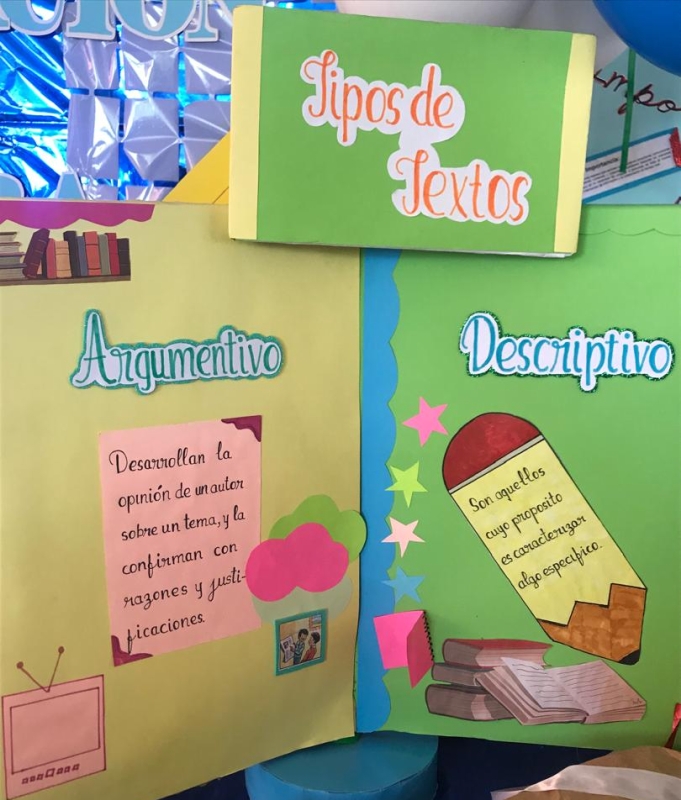 Tipos de
Textos
Argumentivo
Desarrollan la
opinión de un autor
sobre un tema, y la
confirman con
razones y justi-
ficaciones.
Descriptivo
Son aquellos
cuyo proposito
es caracterizar
algo específico.